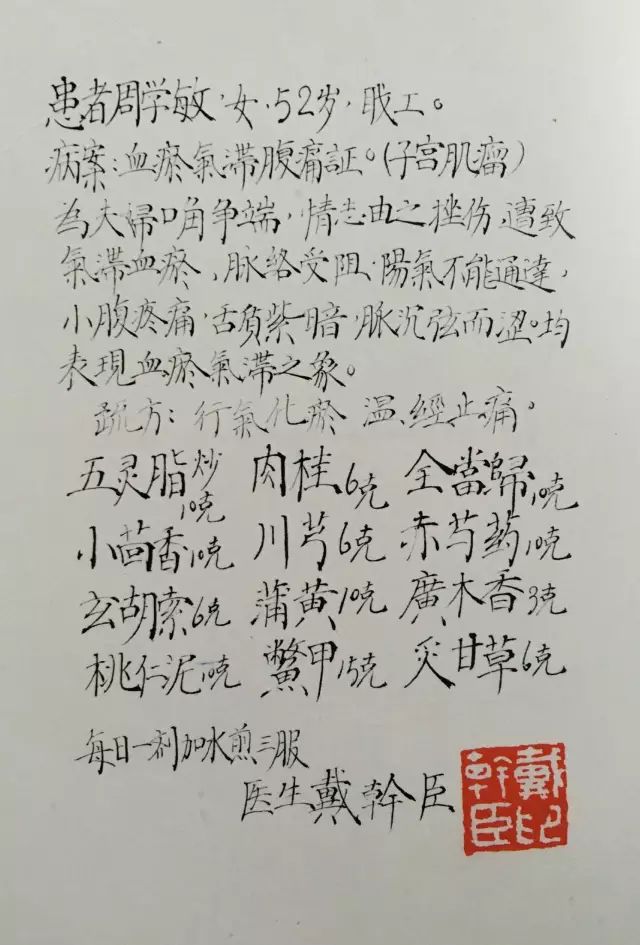 患者周学敏，女，52岁，职工。
病案：血瘀氣滞腹痛証。（子宫肌瘤）
為夫婦口角争端，情志由之挫伤，遭致
氣滞血瘀，脉络受阻，陽氣不能通達，
小腹疼痛，舌质紫暗，脉沉弦而涩。均
表現血瘀氣滞之象。
疏方：行氣化瘀 温經止痛。
五灵脂炒10克 肉桂6克 全當歸10克
小茴香10克 川芎6克 赤芍药10克
玄胡索6克 蒲黄10克 廣木香3克
桃仁泥10克 鱉甲15克 炙甘草6克
每日一剂加水煎三服
医生戴幹臣
戴幹臣印